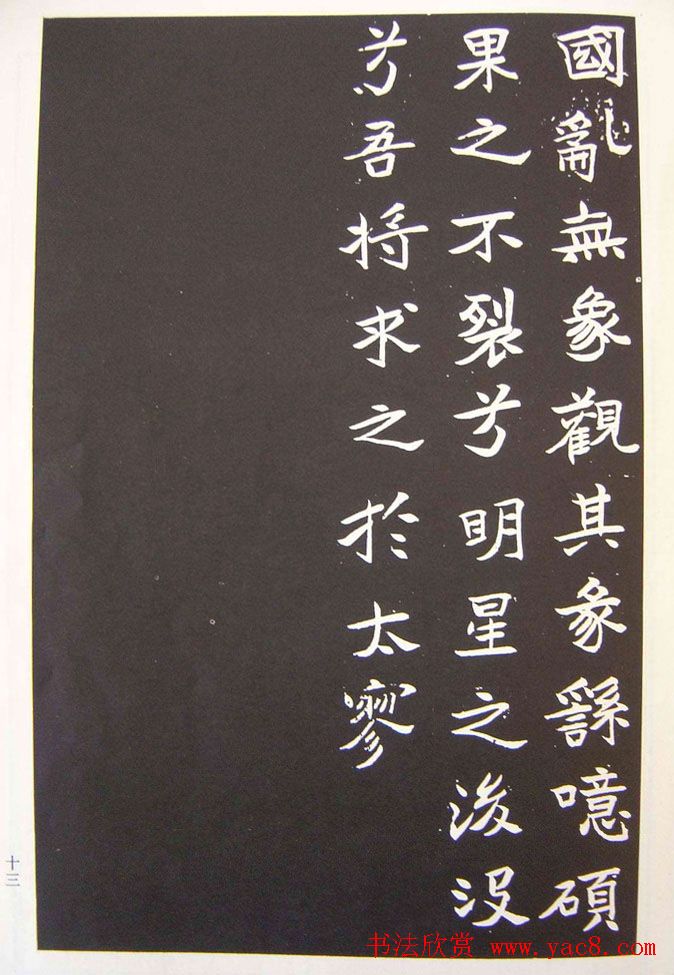 國亂無象觀其象繇噫碩
果之不裂兮明星之浚没
兮吾将求之於太寥
十三
书法欣赏 www.yac8.com